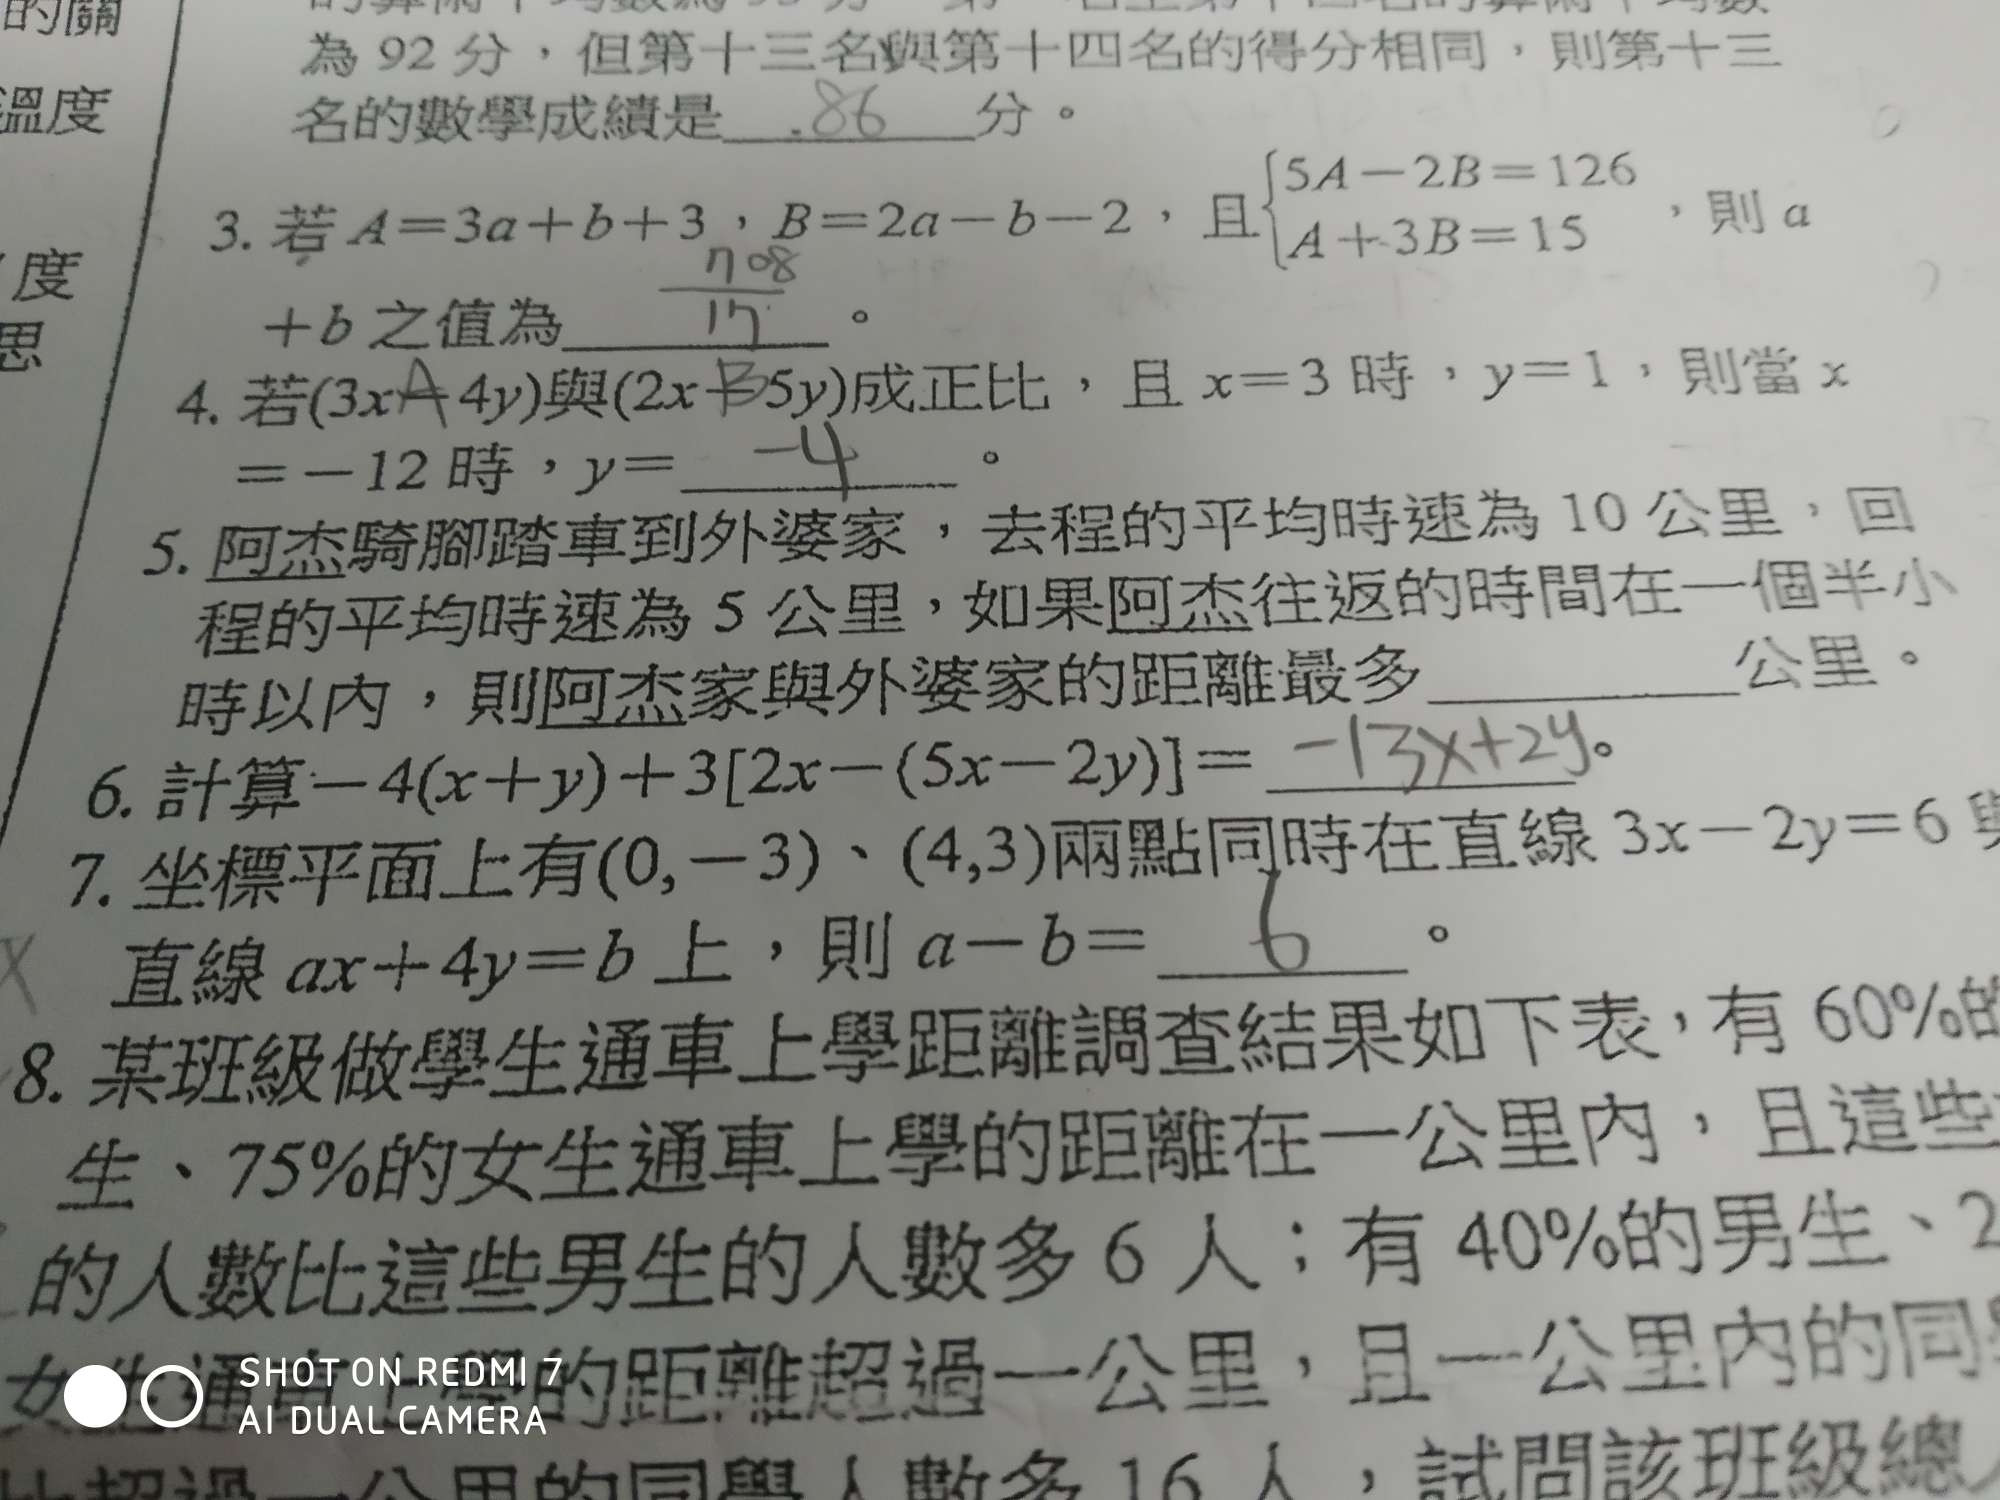 的關
溫度
度
思
為 92 分，但第十三名與第十四名的得分相同，則第十三
名的數學成績是 .86 分。
3. 若 A＝3a＋b＋3，B＝2a－b－2，且{5A－2B＝126
A＋3B＝15，則 a
＋b 之值為 708/17 。
4. 若(3x 4y)與(2x 5y)成正比，且 x＝3 時，y＝1，則當 x
＝－12 時，y＝ -4 。
5. 阿杰騎腳踏車到外婆家，去程的平均時速為 10 公里，回
程的平均時速為 5 公里，如果阿杰往返的時間在一個半小
時以內，則阿杰家與外婆家的距離最多 公里。
6. 計算－4(x＋y)＋3[2x－(5x－2y)]＝ -13x+2y 。
7. 坐標平面上有(0,－3)、(4,3)兩點同時在直線 3x－2y＝6 與
直線 ax＋4y＝b 上，則 a－b＝ 6 。
8. 某班級做學生通車上學距離調查結果如下表，有 60%的
生、75%的女生通車上學的距離在一公里內，且這些
的人數比這些男生的人數多 6 人；有 40%的男生、2
女生通車上學的距離超過一公里，且一公里內的同學
比超過一公里的同學人數多 16 人，試問該班級總人
SHOT ON REDMI 7
AI DUAL CAMERA